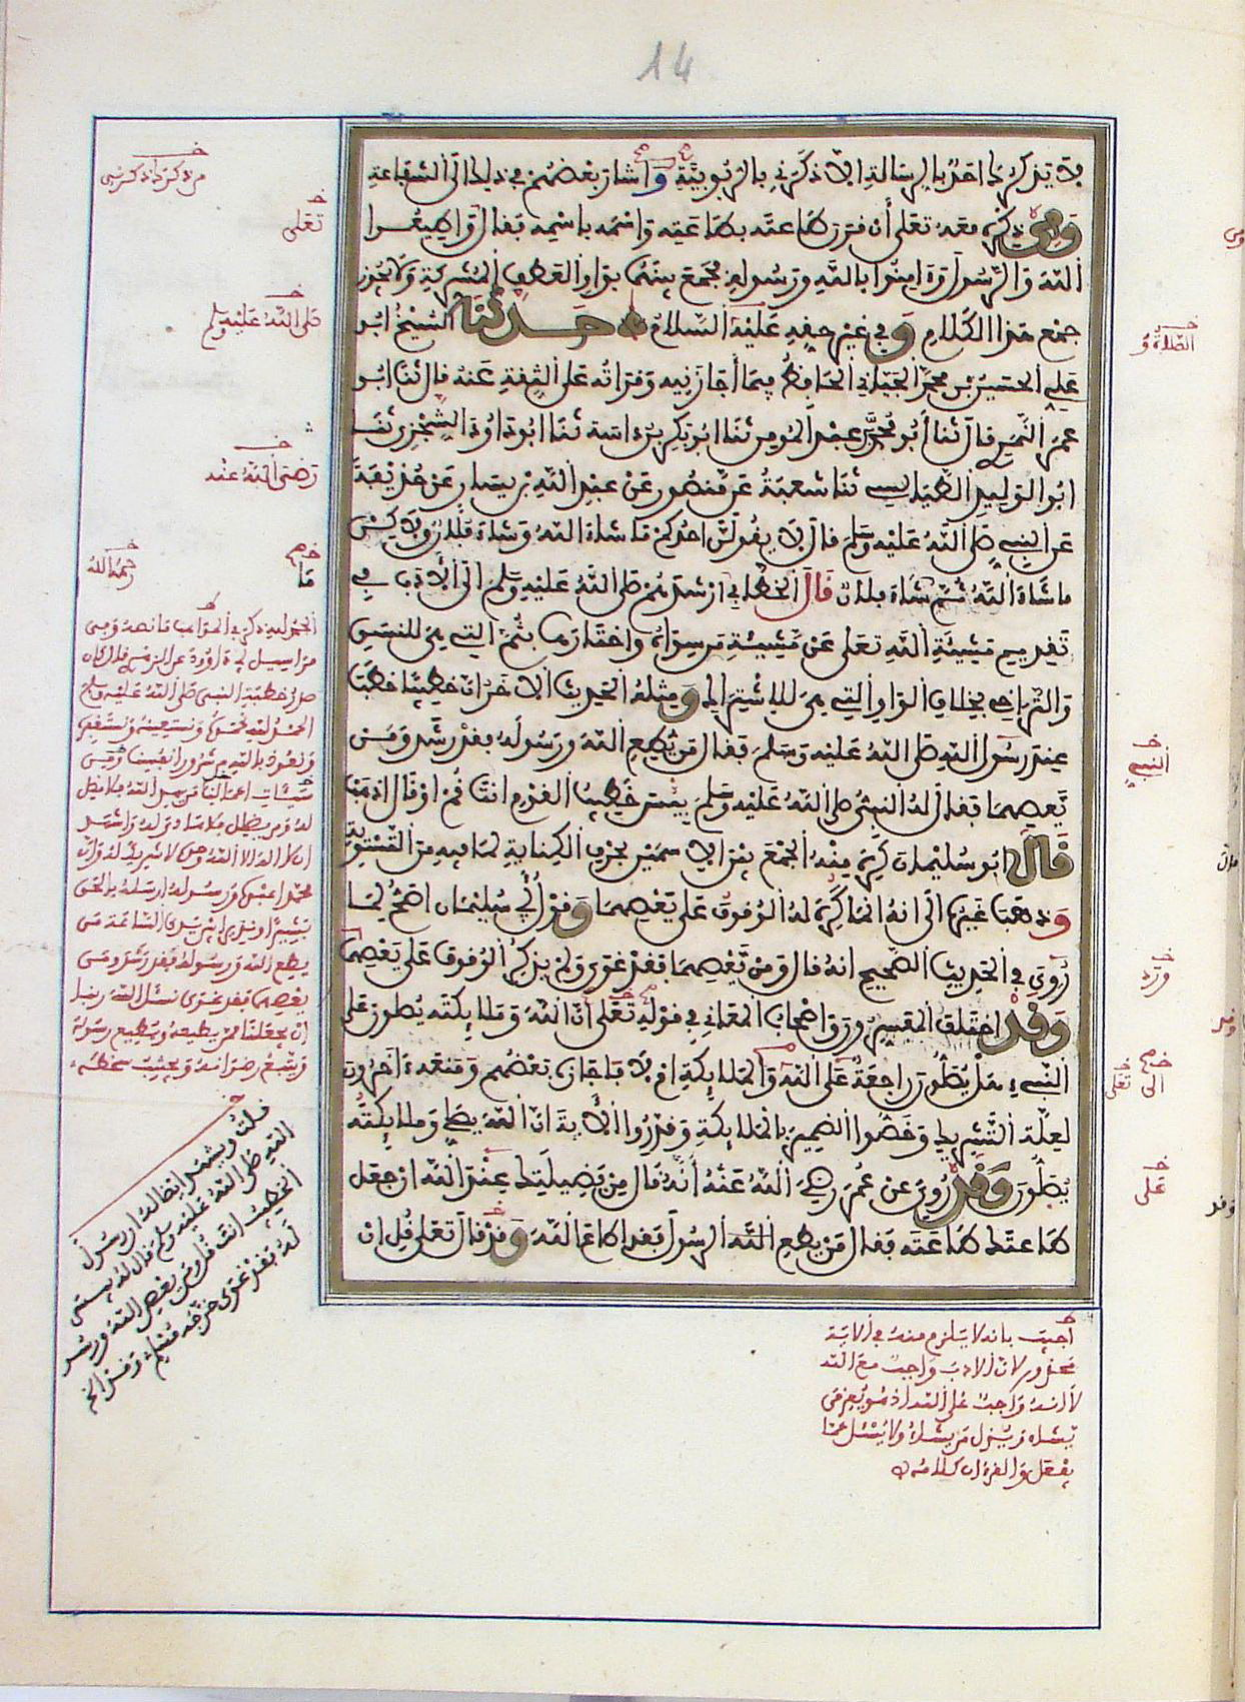 14
لا يذكرك احد بالرسالة الا ذكرني بالربوبية واشار بعضهم في ذلك الى الشفاعة
ومن ذكره معه تعلى أن قرن طاعته بطاعته واسمه باسمه فقال واطيعوا
الله والرسول وءامنوا بالله ورسوله فجمع بينهما بواو العطف المشركة ولا يجوز
جمع هذا الكلام في غير حقه عليه السلام حدثنا الشيخ ابو
علي الحسين بن محمد الجياني الحافظ فيما أجازنيه وقراته على الثقة عنه قال ثنا ابو
عمر النمري قال ثنا أبو محمد بن عبد المومن ثنا ابو بكر بن داسة ثنا ابو داود السجزي ثنا
ابو الوليد الطيالسي ثنا شعبة عن منصور عن عبد الله بن يسار عن حذيفة
عن النبي صلى الله عليه وسلم قال لا يقولن احدكم ما شاء الله وشاء فلان ولاكن
ما شاء الله ثم شاء فلان قال الخطابي ارشدهم صلى الله عليه وسلم الى الادب في
تقديم مشيئة الله تعلى عن مشيئة من سواه واختارها بثم التي هي للنسق
والتراخي بخلاف الواو التي هي للاشتراك ومثله الحديث الاخر ان خطيبا خطب
عند رسول الله صلى الله عليه وسلم فقال من يطع الله ورسوله فقد رشد ومن
يعصهما فقال له النبي صلى الله عليه وسلم بيس خطيب القوم انت قم او قال اذهب
قال ابو سليمان كره منه الجمع بين الاسمين بحرف الكناية لما فيه من التسوية
وذهب غيره الى انه انما كره له الوقوف على يعصهما وقول أبي سليمان اصح لما
روي في الحديث الصحيح انه قال ومن يعصهما فقد غوى ولم يذكر الوقوف على يعصهما
وقد اختلف المفسرون واصحاب المعاني في قوله تعلى ان الله وملائكته يصلون على
النبي هل يصلون راجعة على الله والملائكة ام لا فاجازه بعضهم ومنعه ءاخرون
لعلة التشريك وخصوا الضمير بالملائكة وقدروا الاية ان الله يصلي وملائكته
يصلون وقد روي عن عمر رضي الله عنه أنه قال من فضيلتك عند الله ان جعل
طاعتك طاعته فقال من يطع الله الرسول فقد اطاع الله وقد قال تعلى قل ان
من ذكرك ذكرني
تعلى
صلى الله عليه وسلم
رضي الله عنه
رحمه الله
ما
الحمد لله ذكر في المواهب ما نصه ومن
مراسيل أبي داوود عن الزهري قال كان
صدر خطبة النبي صلى الله عليه وسلم
الحمد لله نحمده ونستعينه ونستغفره
ونعوذ بالله من شرور انفسنا ومن
سيئات اعمالنا من يهد الله فلا مضل
له ومن يضلل فلا هادي له واشهد
ان لا اله الا الله وحده لا شريك له وان
محمدا عبده ورسوله ارسله بالحق
بشيرا ونذيرا بين يدي الساعة من
يطع الله ورسوله فقد رشد ومن
يعصهما فقد غوى نسئل الله ربنا
ان يجعلنا ممن يطيعه ويطيع رسوله
ويتبع رضوانه ويجتنب سخطه
قلت ويشهد ايضا له ان رسول
الله صلى الله عليه وسلم قال له بيس
الخطيب انت قل ومن يعص الله ورسو
له فقد غوى خرجه مسلم
الصلاة و
النبي
الى
تعلى
على
اجيب بانه لا يلزم منه في الاية
محذور لان الادب واجب مع الله
لا انه واجب على الله اذ هو يعز من
يشاء ويذل من يشاء ولا يسئل عما
يفعل والقرءان كلامه